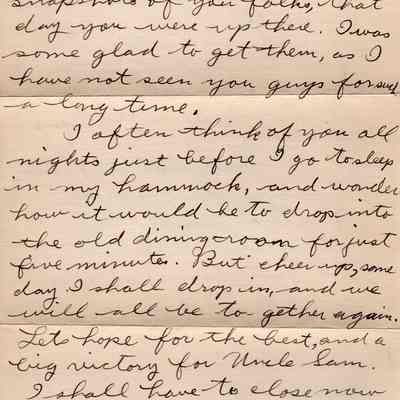 snapshots of you folks, that
day you were up there. I was
some glad to get them, as I
have not seen you guys for such
a long time.
I often think of you all
nights just before I go to sleep
in my hammock, and wonder
how it would be to drop into
the old dining-room for just
five minutes. But cheer up, some
day I shall drop in, and we
will all be to-gether again.
Lets hope for the best, and a
big victory for Uncle Sam.
I shall have to close now